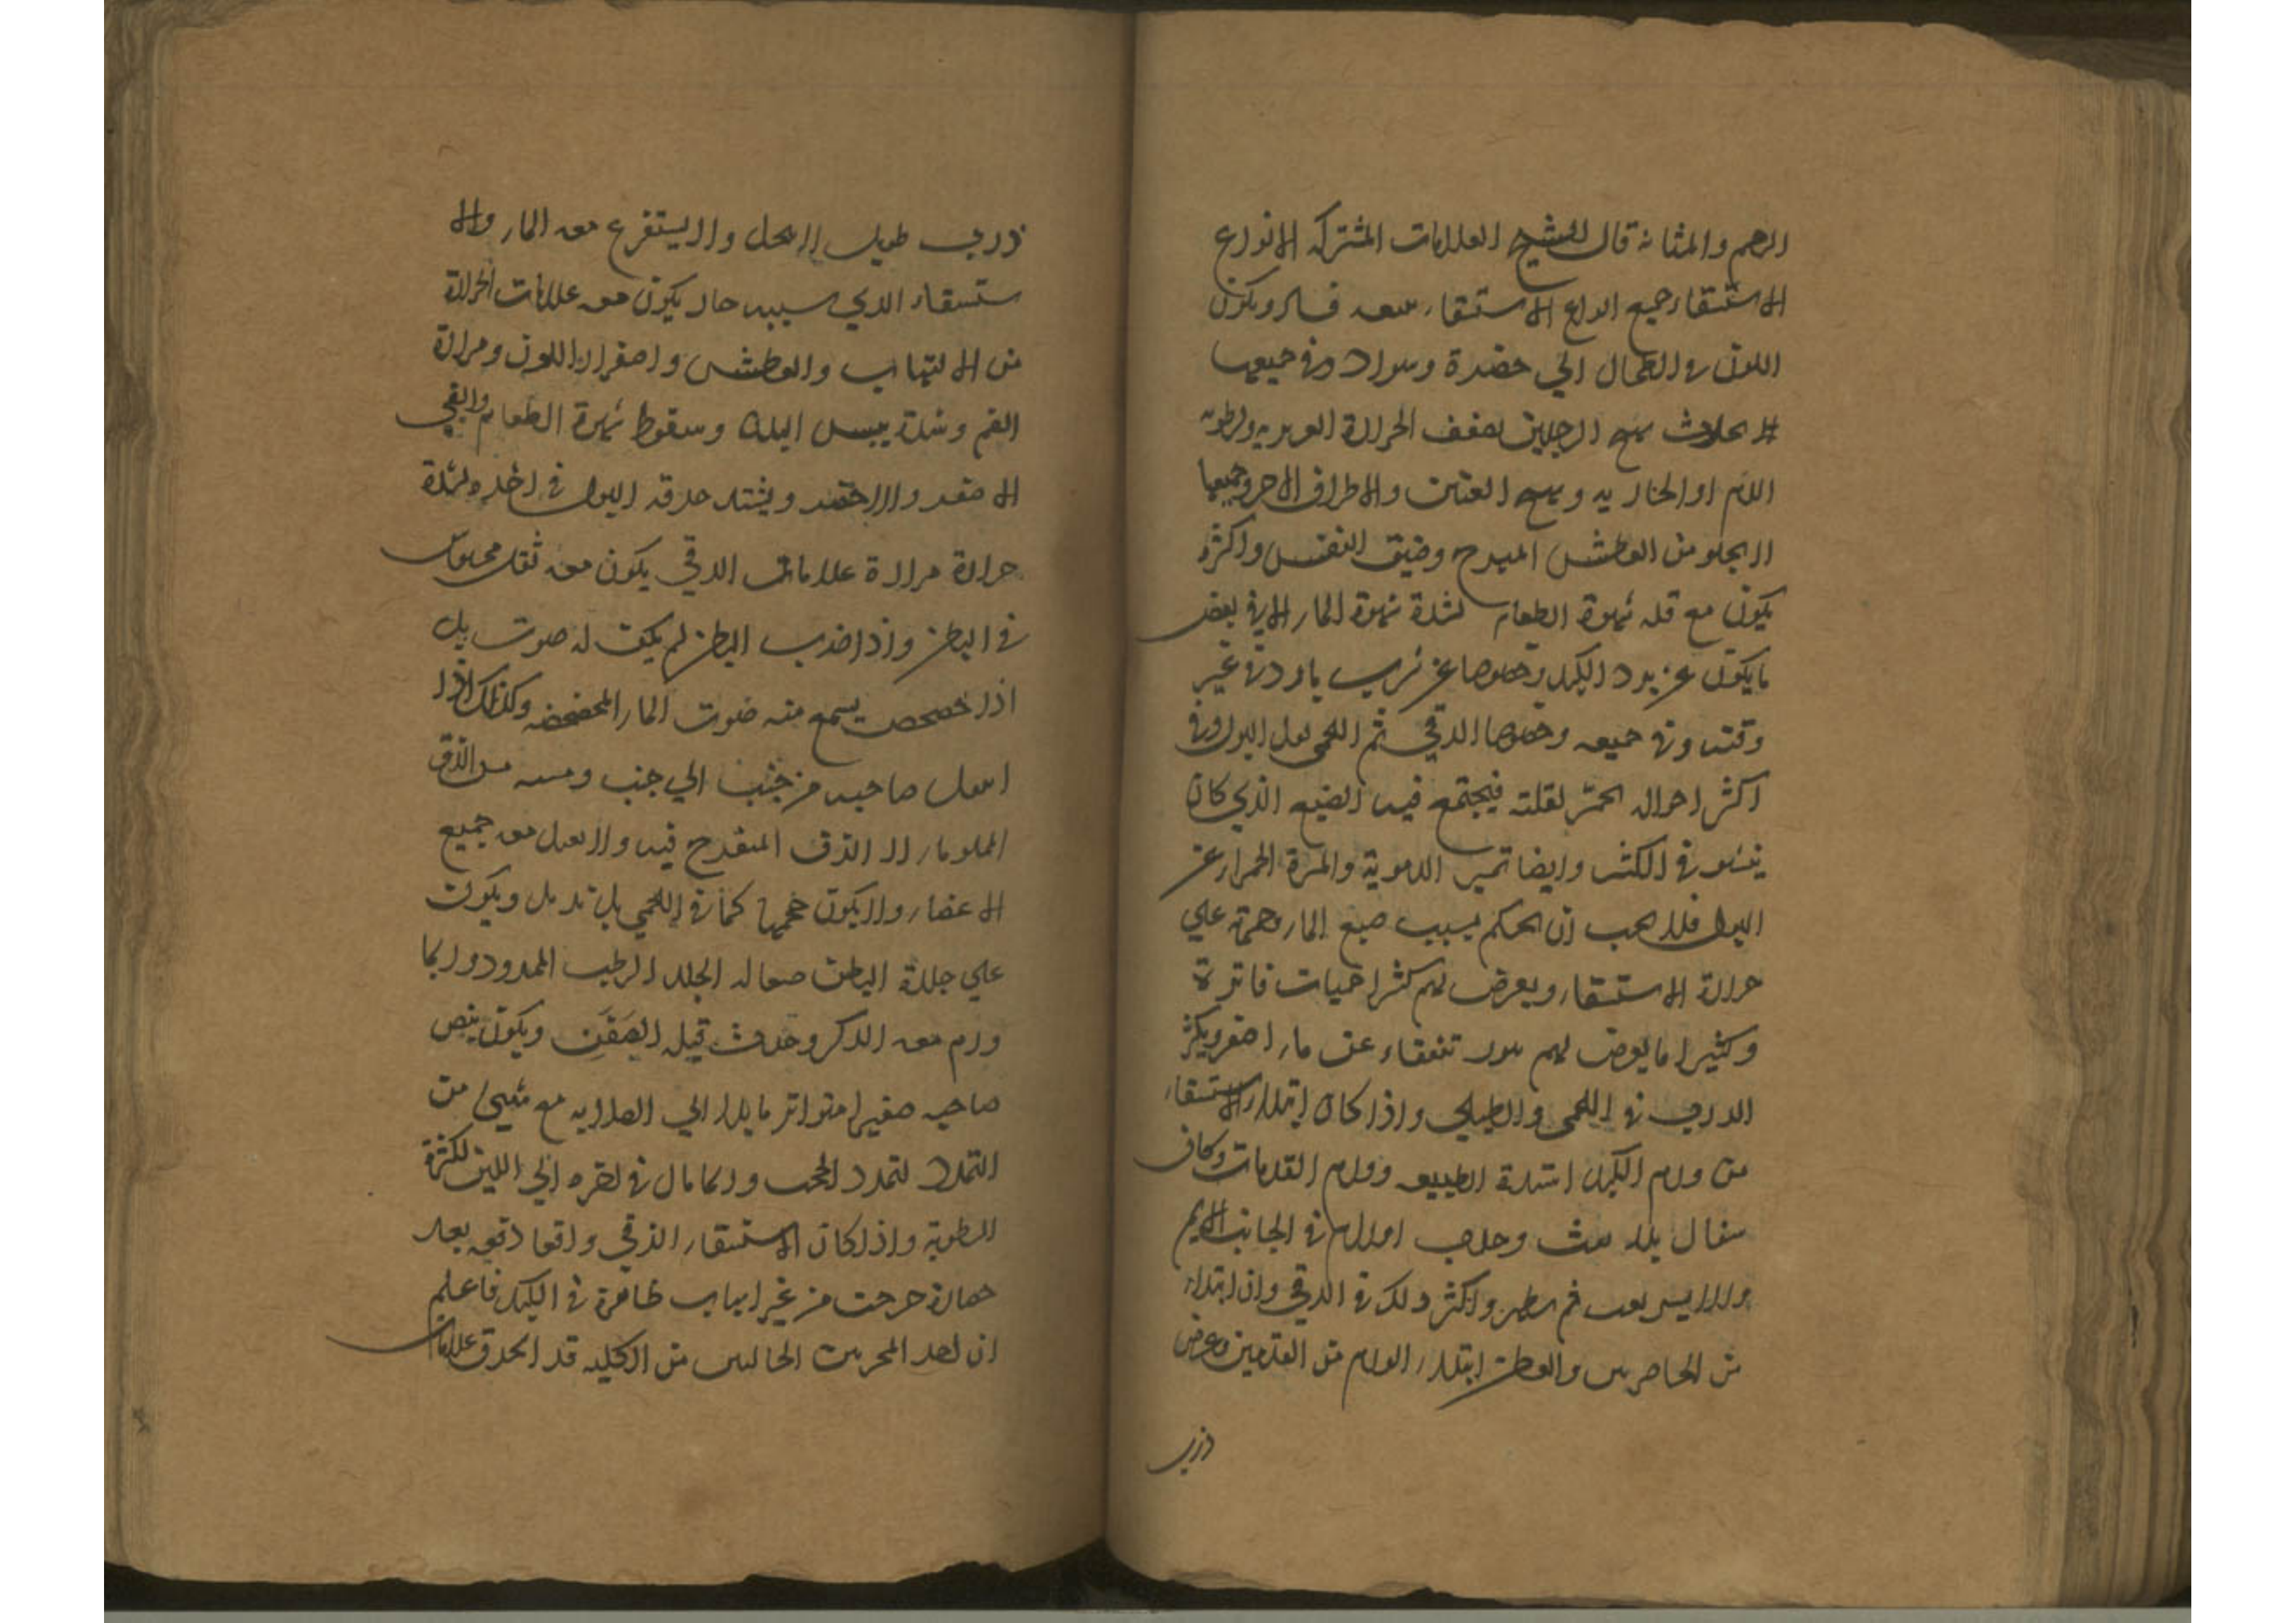 الرحم والمثانه قال الشيخ العلامات المشتركه لانواع
الاستسقاء جميع انواع الاستسقاء يتبعه فساد ويكون
اللون في الطحال الي خضرة وسواد وفي جميعها
يحدث تهيج الرجلين لضعف الحرارة الغريزيه ولرطوبه
الدم او البخاريه وتهيج العينين والاطراف الاخر وجميعها
لا يخلو من العطش المبرح وضيق النفس واكثره
يكون مع قله شهوة الطعام لشدة شهوة الماء الا في بعض
ما يكون عن برد الكبد وخصوصا عن شرب بارد في غير
وقته وفي جميعه وخصوصا الدقي ثم اللحمي يقل البول وفي
اكثر احواله يحمر لقلته فيجتمع فيه الصبغ الذي كان
يفشو في الكثير وايضا تميز الدموية والمرة الحمراء عن
البول فلا يجب ان يحكم بسبب صبغ الماء وحمرته علي
حرارة الاستسقاء ويعرض لهم كثيرا حميات فاترة
وكثيرا ما يعرض لهم بثور تتفقاء عن ماء اصفر ويكثر
الدرب في اللحمي والطبلي واذا كان ابتداء الاستسقاء
من ورم الكبد اشتدة الطبيعه وورم القدمان وكان
سعال بلا نفث وحدث اورام في الجانب الايمن
والايسر يغيب ثم يظهر واكثر ذلك في الدقي وان ابتداء
من الخاصرتين والقطن ابتداء الورم من القدمين وعرض
درب
درب طويل لا ينحل ولا يستفرغ معه الماء والا
ستسقاء الذي سببه حار يكون معه علامات الحرارة
من الالتهاب والعطش واصفرار اللون ومرارة
الفم وشدة يبس البدن وسقوط شهوة الطعام والقي
الاصفر والاخضر ويشتد حرقه البول في اخره لشدة
حرارة مرارة علامات الدقي يكون معه ثقل محسوس
في البطن واذا ضرب البطن لم يكن له صوت بل
اذا خضخض يسمع منه صوت الماء المخضخض وكذلك اذا
انتقل صاحبه من جنب الي جنب ومسه مس الزق
المملو ماء لا الزق المنفوخ فيه ولا يعبل معه جميع
الاعضاء ولا يكون حجمها كما في اللحمي بل تذبل ويكون
علي جلدة البطن صقاله الجلد الرطب الممدود وربما
ورم معه الذكر وحدث قيله الصفن ويكون نبض
صاحبه صغيرا متواتر مايلا الي الصلابه مع شي من
التمدد لتمدد الحجب وربما مال في اخره الي اللين لكثرة
الرطوبة واذا كان الاستسقاء الزقي واقعا دفعه بعد
حصاة خرجت من غير اسباب ظاهرة في الكبد فاعلم
ان احد المجريين الجاليين من الكليه قد انخرق علامات